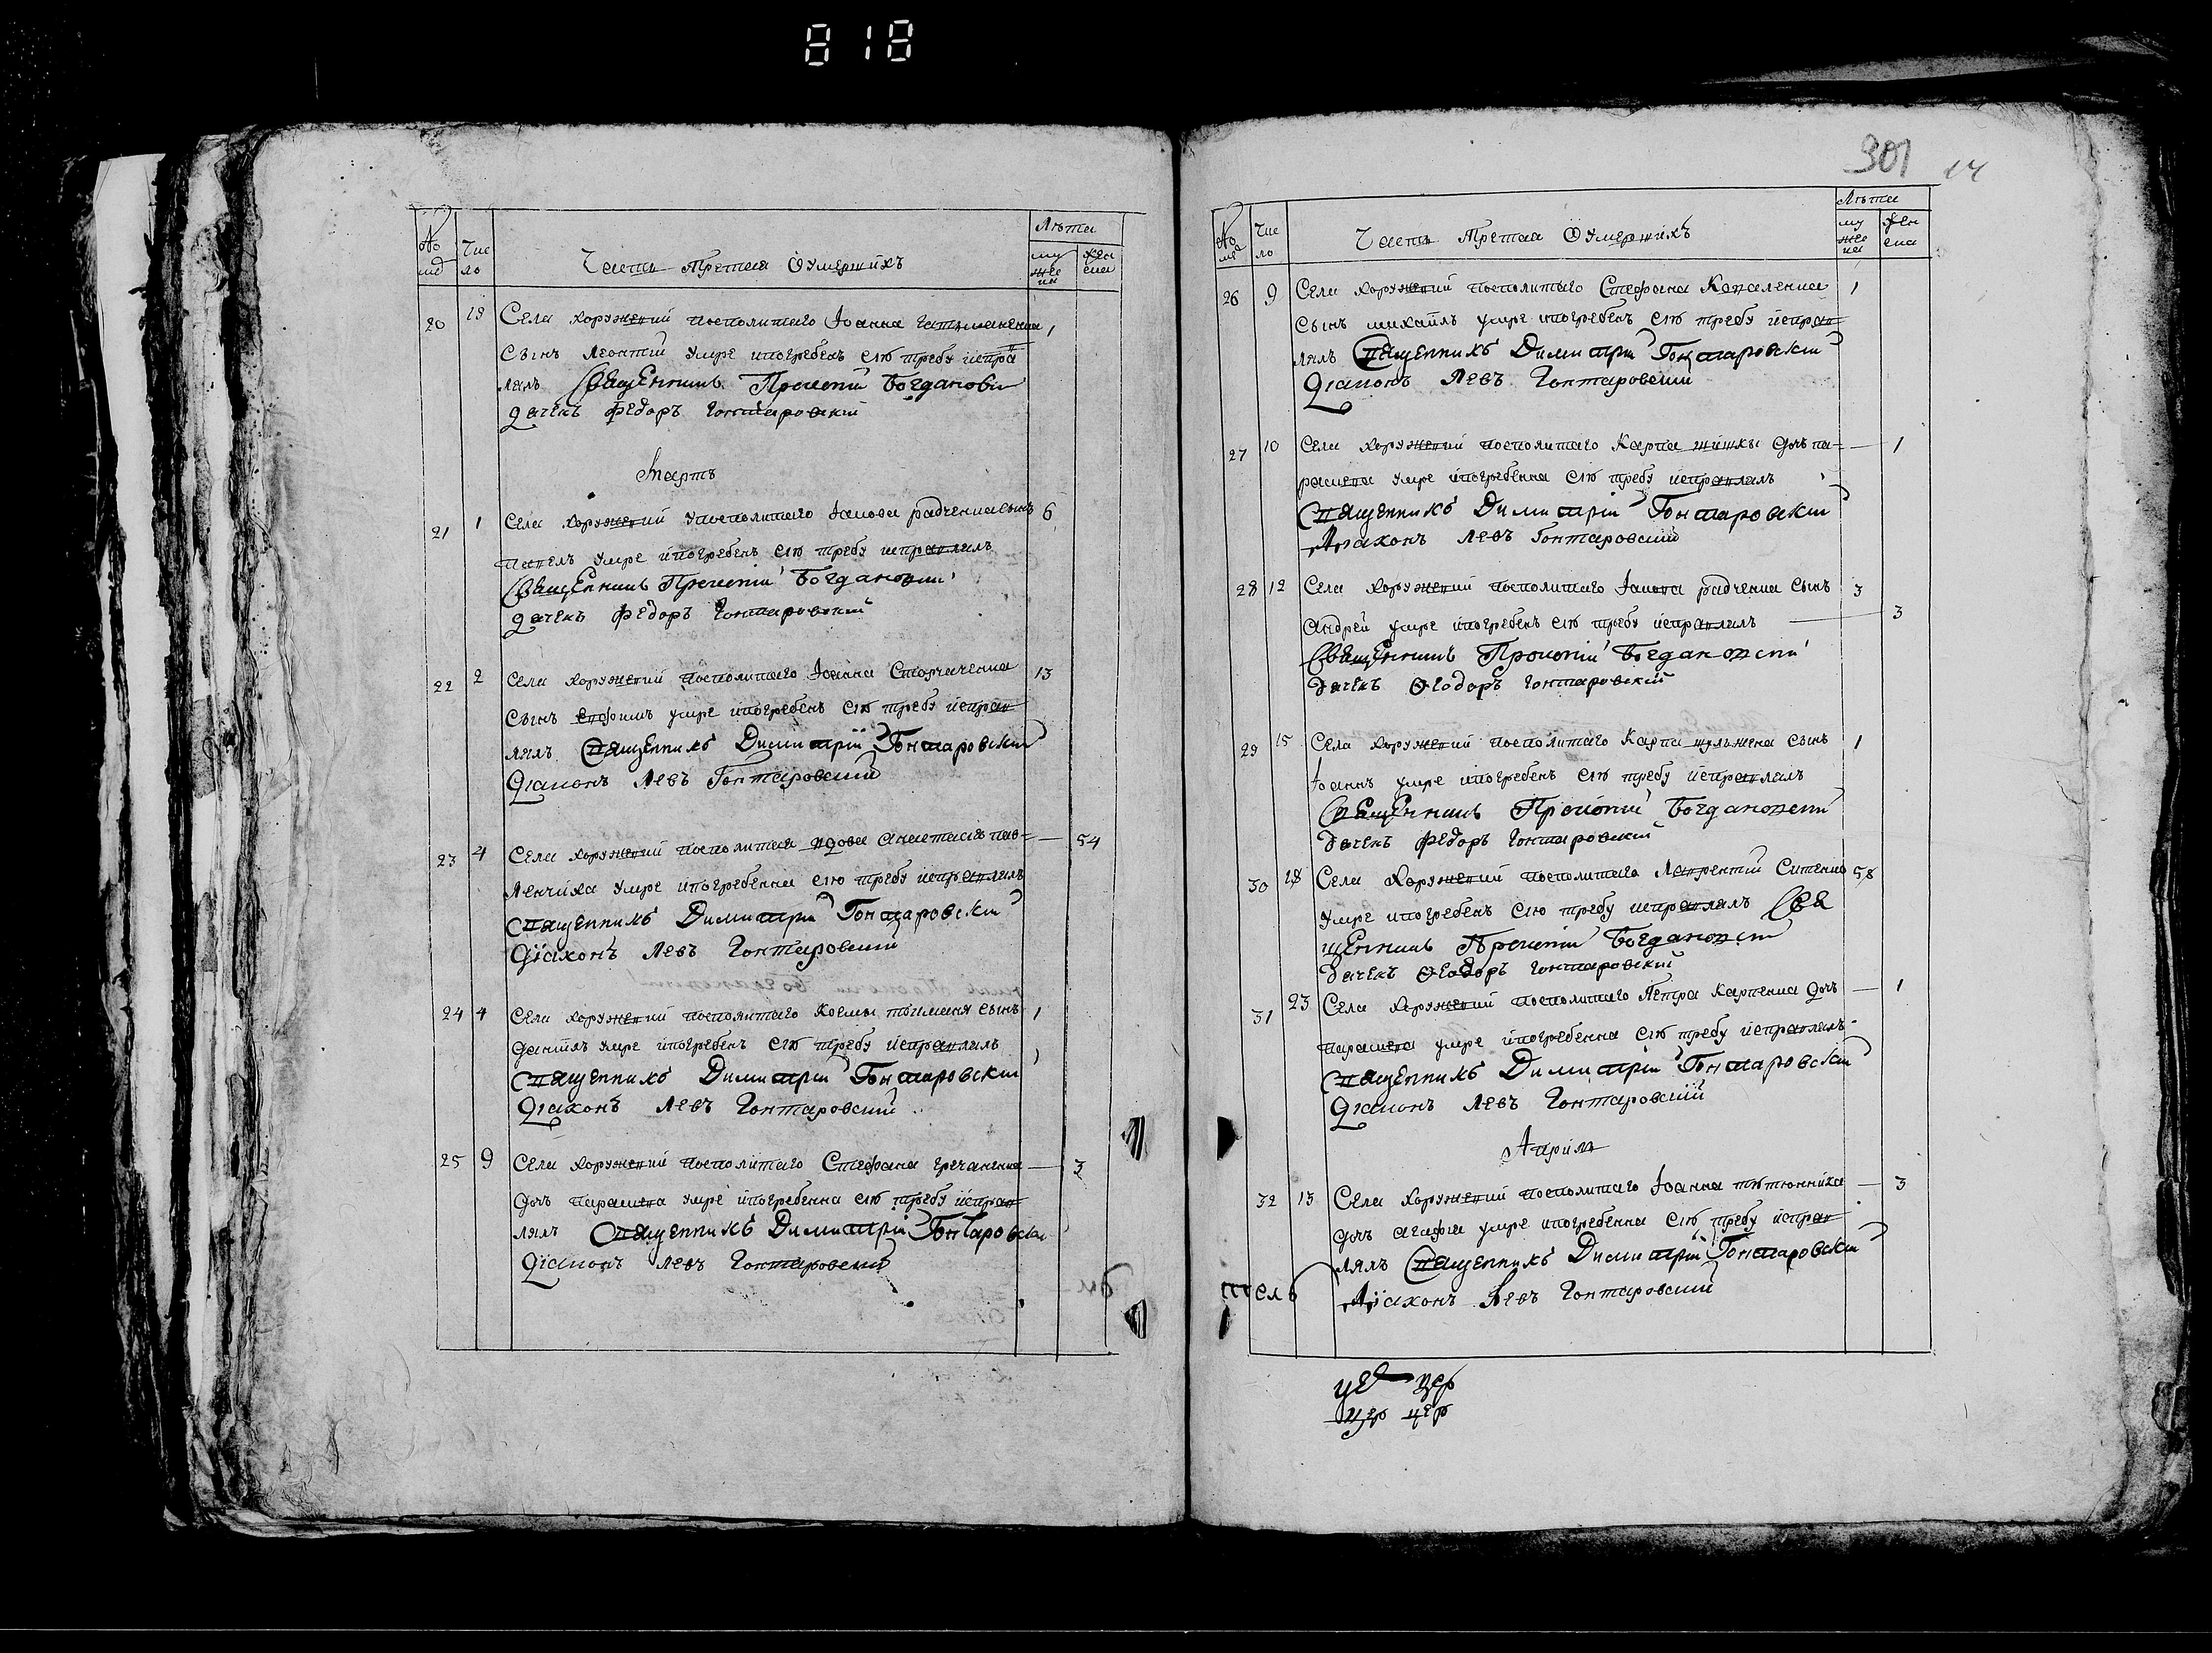 818
Число
Часть третая О умершихъ
Лѣта
мужеска
женска
20 19 Села Хоружевки посполитого Іоанна Гатманенка 1
сынъ Леонтій умре ипогребенъ сію требу исправ
лялъ Священникъ Прокопій Богданови
дячекъ Федоръ Гонтаровскій
Мартъ
21 1 Села Хоружевки посполитаго Іакова радченка сынъ 6
павелъ умре ипогребенъ сію требу исправлялъ
Священникъ Прокопій Богдановски
дячекъ Федоръ Гонтаровскій
22 2 Села Хоружевки посполитаго Іоанна Сторчаченка 13
сынъ евфимъ умре ипогребенъ сію требу исправ
лялъ Священникъ Димитрій Гонтаровскій
Діаконъ Левъ Гонтаровскій
23 4 Села Хоружевки посполитая вдова Анастасія пав= — 54
ленчиха умре ипогребенна сію требу исправлялъ
Священникъ Димитрій Гонтаровскій
Діаконъ Левъ Гонтаровскій
24 4 Села Хоружевки посполитаго Космы сынъ 1
Даніилъ умре ипогребенъ сію требу исправлялъ
Священникъ Димитрій Гонтаровскій
Діаконъ Левъ Гонтаровскій
25 9 Села Хоружевки посполитаго Стефана гречаненка — 3
дочъ парасева умре ипогребенна сію требу исправ
лялъ Священникъ Димитрій Гонтаровски
Діаконъ Левъ Гонтаровскій
301 14
Число
Часть третая О умершихъ
Лѣта
мужеска
женска
26 9 Села Хоружевки посполитаго Стефана Коваленка 1
сынъ михаилъ умре ипогребенъ сію требу исправ
лялъ Священникъ Димитрій Гонтаровскій
Діаконъ Левъ Гонтаровскій
27 10 Села Хоружевки посполитаго Карпа шишки дочъ па= — 1
расева умре ипогребенна сію требу исправлялъ
Священникъ Димитрій Гонтаровскій
Діаконъ Левъ Гонтаровскій
28 12 Села Хоружевки посполитаго Іакова радченка сынъ 3
андрей умре ипогребенъ сію требу исправлялъ — 3
Священникъ Прокопій Богдановски
Дячекъ Ѳеодоръ Гонтаровскій
29 15 Села Хоружевки посполитаго Карпа шульжена сынъ 1
Іоаннъ умре ипогребенъ сію требу исправлялъ
Священникъ Прокопій Богдановски
Дячекъ Федоръ Гонтаровскій
30 18 Села Хоружевки посполитаго Лаврентій Ситенко 58
умре ипогребенъ сію требу исправлялъ Свя
щенникъ Прокопій Богдановски
Дячекъ Ѳеодоръ Гонтаровскій
31 23 Села Хоружевки посполитаго Петра Карпенка дочъ — 1
парасева умре ипогребенна сію требу исправлялъ
Священникъ Димитрій Гонтаровскій
Діаконъ Левъ Гонтаровскій
Апріля
32 13 Села Хоружевки посполитаго Іоанна тютюнника — 3
дочъ агафія умре ипогребенна сію требу исправ
лялъ Священникъ Димитрій Гонтаровскій
Діаконъ Левъ Гонтаровскій
цер
цер цер